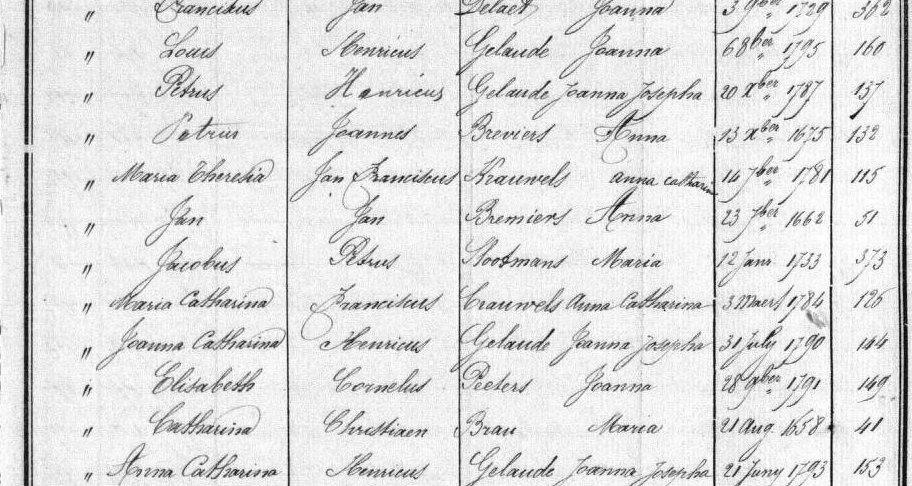 " Franciskus Jan Delaet Joanna 3 9ber 1729 362
" Louis Henricus Gelaude Joanna 6 8ber 1795 160
" Petrus Henricus Gelaude Joanna Josepha 20 Xber 1787 137
" Petrus Joannes Breviers Anna 13 Xber 1675 132
" Maria Theresia Jan Franciscus Krauwels anna catharin 14 7ber 1781 115
" Jan Jan Bremiers Anna 23 7ber 1662 51
" Jacobus Petrus Slootmans Maria 12 Janr 1733 373
" Maria Catharina Franciscus Crauwels Anna Catharina 3 Maert 1784 126
" Joanna Catharina Henricus Gelaude Joanna Josepha 31 July 1790 144
" Elisabeth Cornelus Peeters Joanna 28 9ber 1791 149
" Catharina Christiaen Brau Maria 21 Aug. 1658 41
" Anna Catharina Henricus Gelaude Joanna Josepha 21 Juny 1793 153